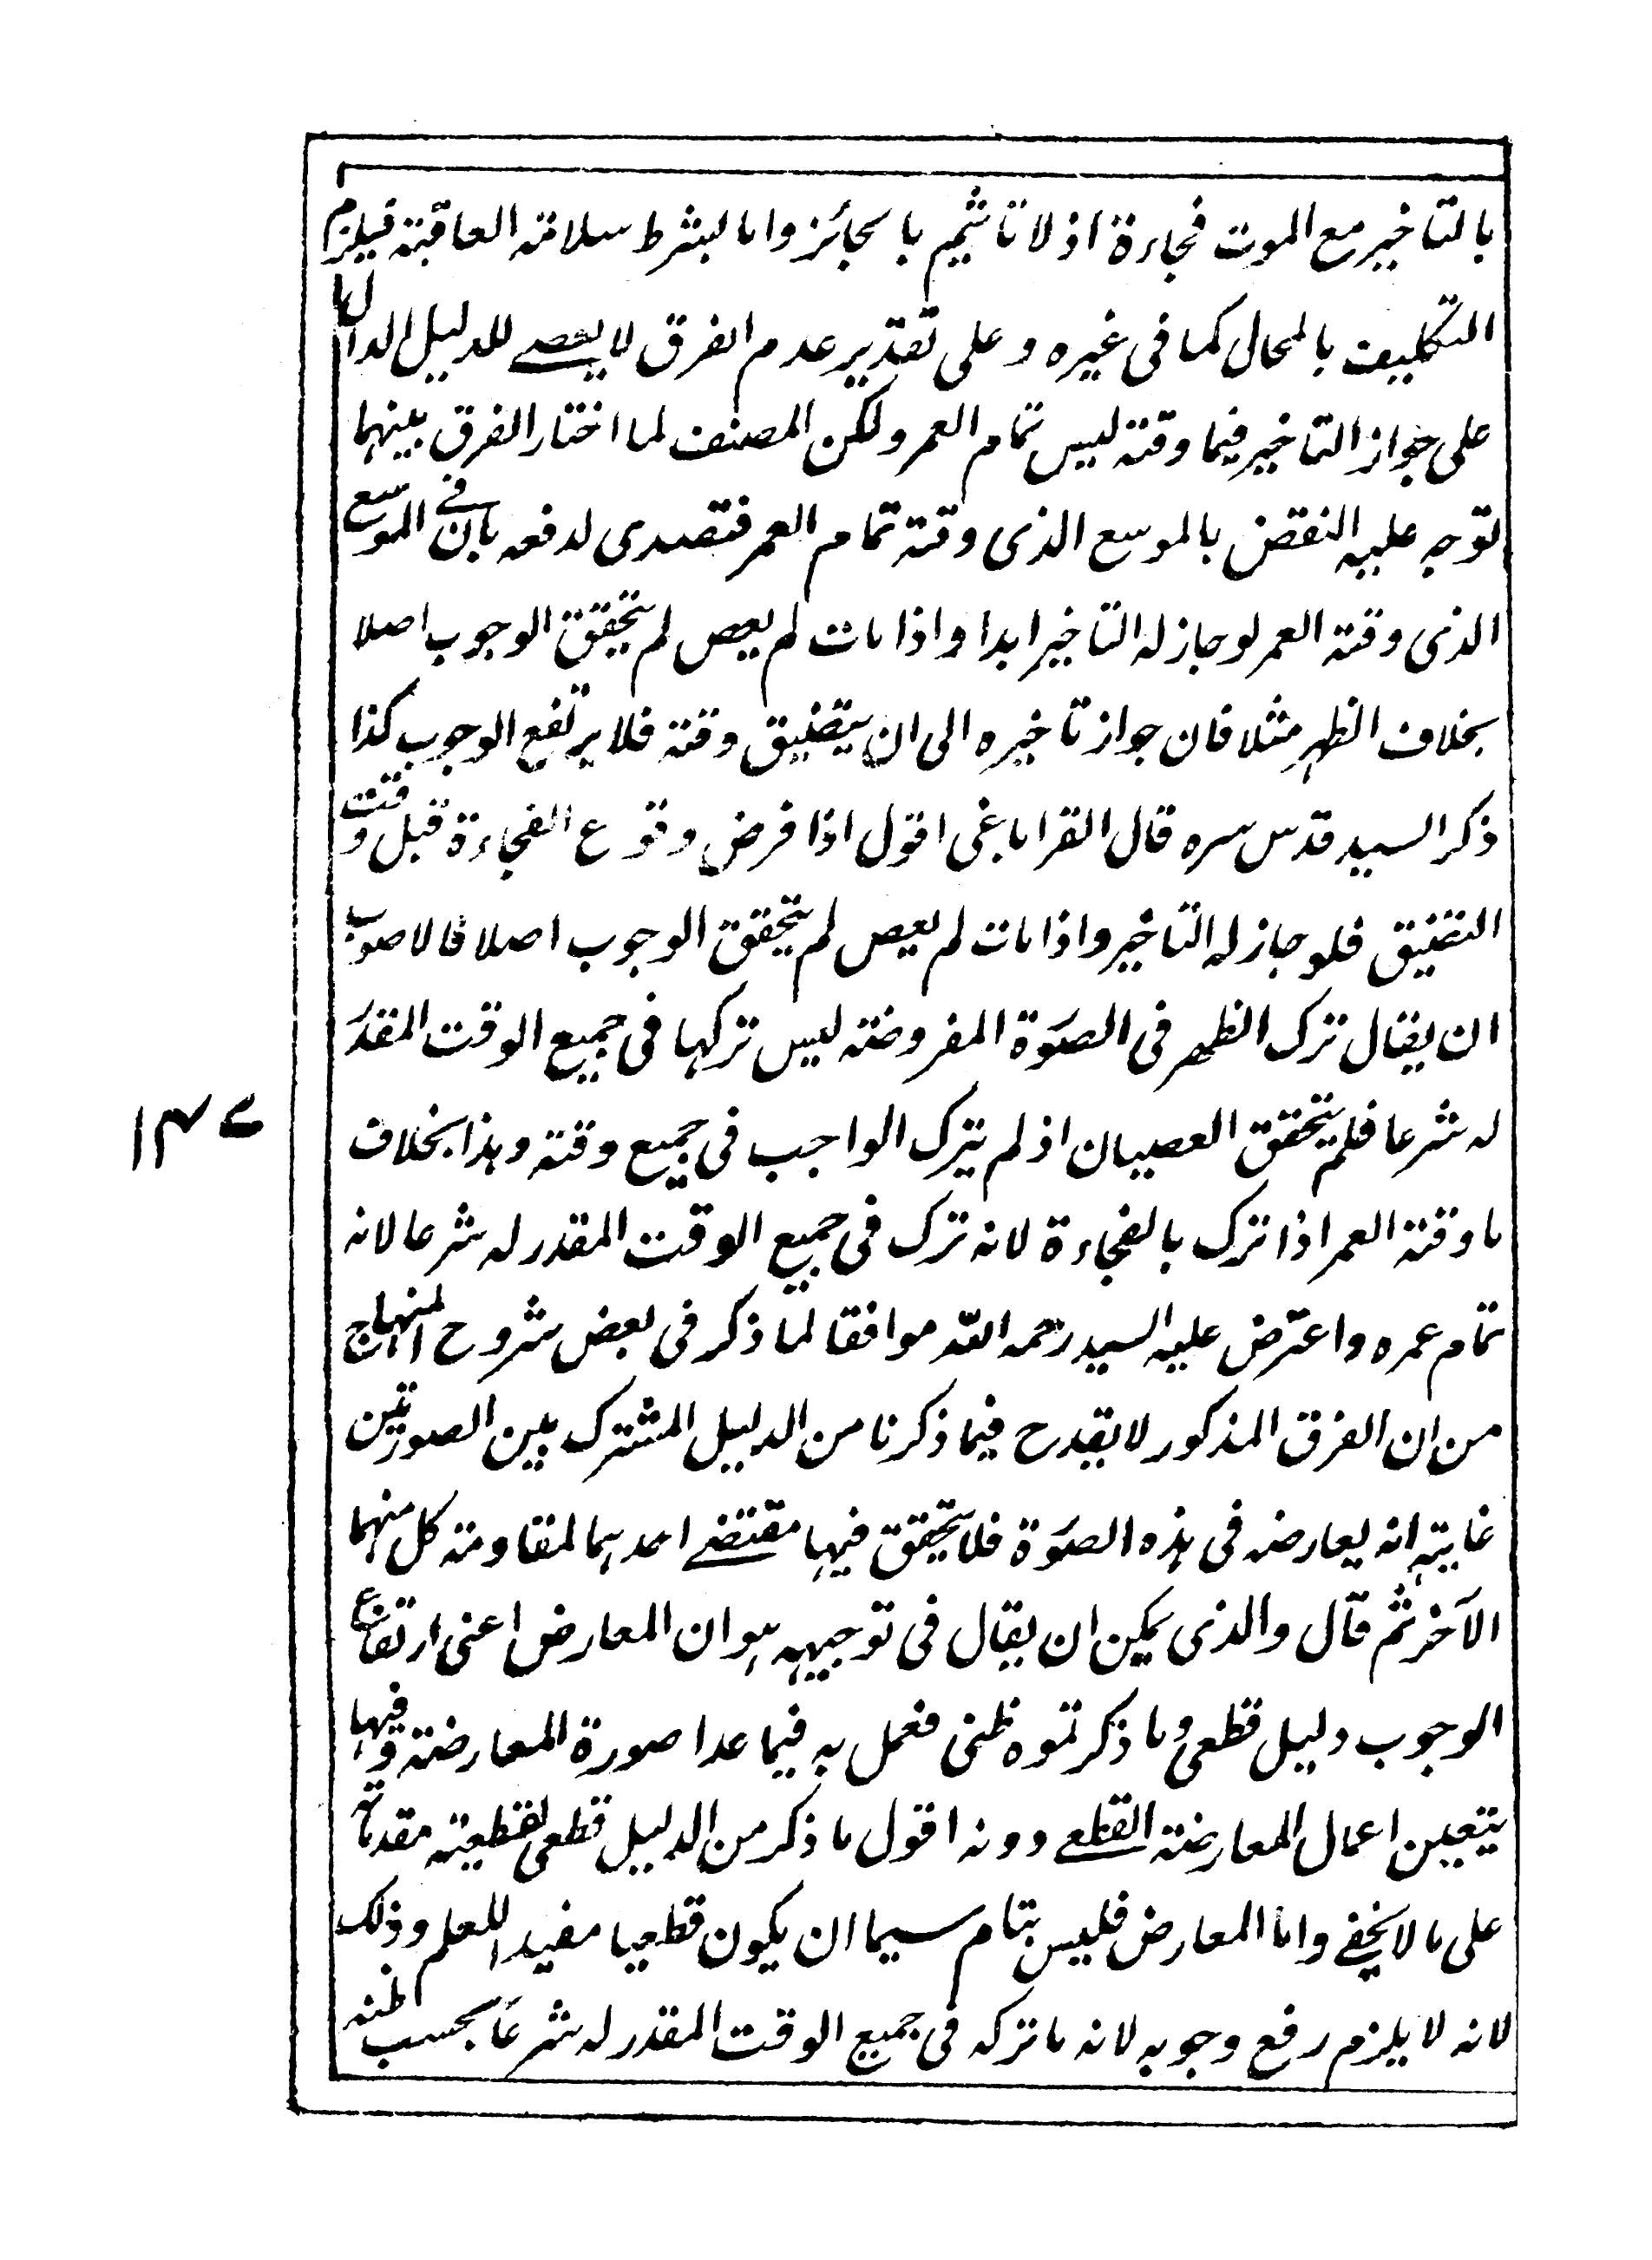 بالتاخير مع الموت فجاءة اذ لا تاثيم بالجائز واما بشرط سلامة العاقبة فيلزم
التكليف بالمحال كما فى غيره وعلى تقدير عدم الفرق لا يعصے للدليل الدال
على جواز التاخير فيما وقته ليس تمام العمر ولكن المصنف لما اختار الفرق بينهما
توجه عليه النقض بالموسع الذى وقته تمام العمر فتصدى لدفعه بان فے الموسع
الذى وقته العمر لو جاز له التاخير ابدا واذا مات لم يعص لم يتحقق الوجوب اصلا
بخلاف الظهر مثلا فان جواز تاخيره الى ان يتضيق وقته فلا يرتفع الوجوب كذا
ذكر السيد قدس سره قال القراباغى اقول اذا فرض وقوع الفجاءة قبل وقت
التضيق فلو جاز له التاخير واذا مات لم يعص لم يتحقق الوجوب اصلا فالاصوب
ان يقال ترك الظهر فى الصورة المفروضة ليس تركها فى جميع الوقت المقدر
له شرعا فلم يتحقق العصيان اذ لم يترك الواجب فى جميع وقته وهذا بخلاف
ما وقته العمر اذا ترك بالفجاءة لانه ترك فى جميع الوقت المقدر له شرعا لانه
تمام عمره واعترض عليه السيد رحمه الله موافقا لما ذكر فى بعض شروح المنهاج
من ان الفرق المذكور لا يقدح فيما ذكرنا من الدليل المشترك بين الصورتين
غايته انه يعارضه فى هذه الصورة فلا يتحقق فيها مقتضے احدهما لمقاومة كل منهما
الآخر ثم قال والذى يمكن ان يقال فى توجيهه هو ان المعارض اعنى ارتفاع
الوجوب دليل قطعى وما ذكرتموه ظنى فعمل به فيما عدا صورة المعارضة وفيها
يتعين اعمال المعارضة القطعے دونه اقول ما ذكر من الدليل قطعى لقطعية مقدماته
على ما لا يخفے واما المعارض فليس بتام سيما ان يكون قطعيا مفيدا للعلم وذلك
لانه لا يلزم رفع وجوبه لانه ما تركه فى جميع الوقت المقدر له شرعا بحسب ظنه
١٣٧